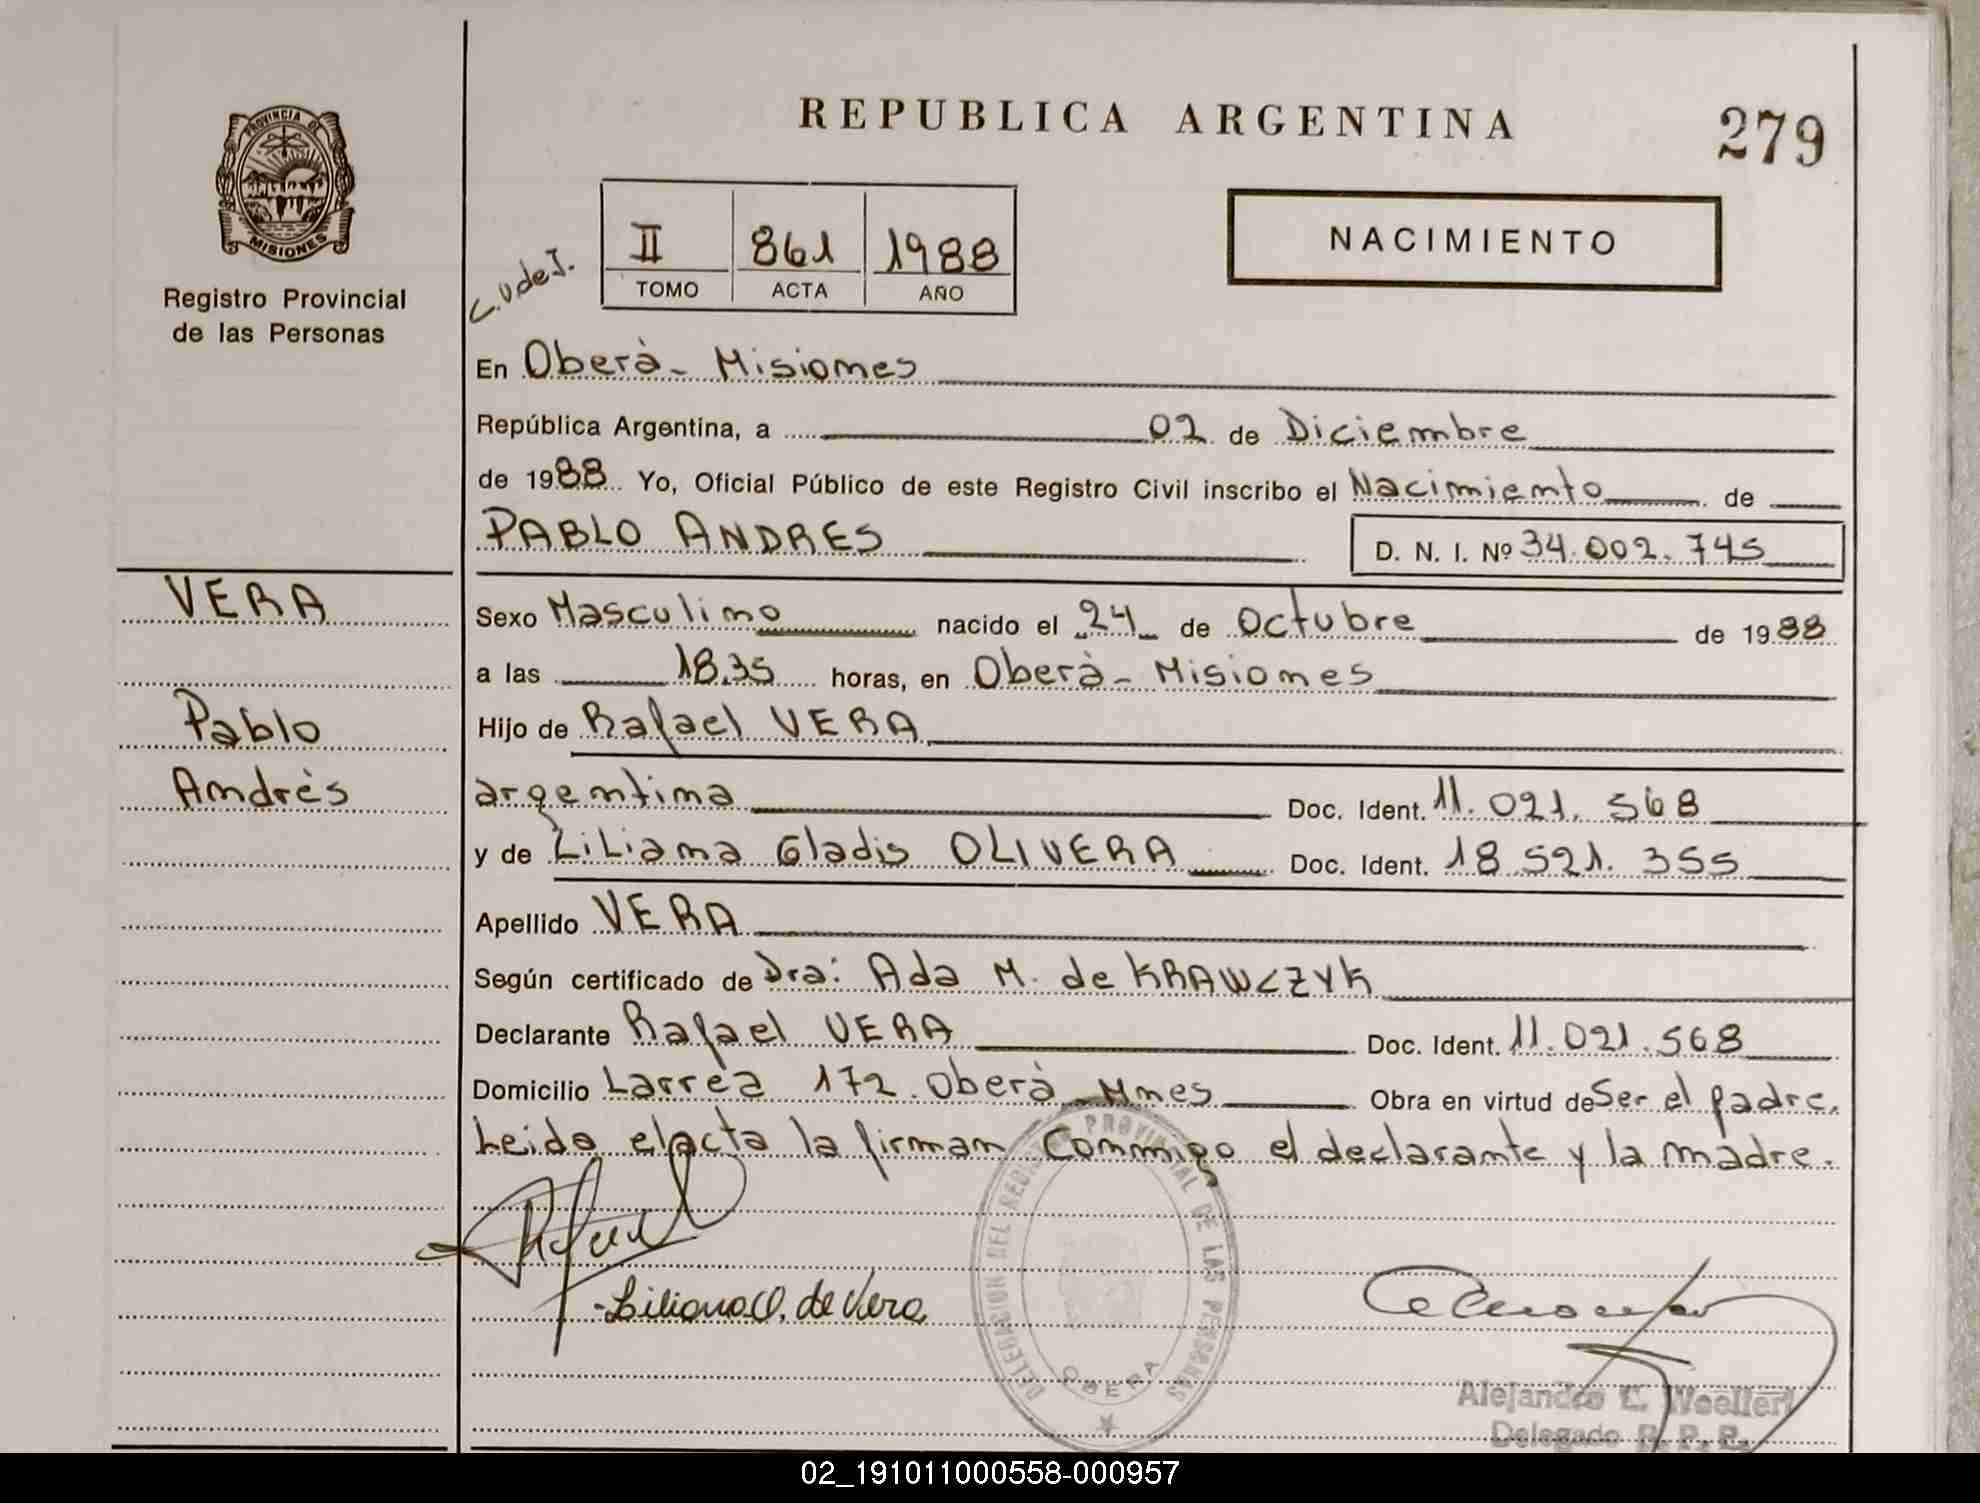 REPUBLICA ARGENTINA
279
PROVINCIA DE
MISIONES
Registro Provincial
de las Personas
C.V.de J.
II 861 1988
TOMO ACTA AÑO
NACIMIENTO
En Oberà - Misiones
República Argentina, a 02 de Diciembre
de 1988 Yo, Oficial Público de este Registro Civil inscribo el Nacimiento de
PABLO ANDRES
D. N. I. Nº 34.002.745
VERA
Pablo
Andrés
Sexo Masculino nacido el 24 de Octubre de 1988
a las 18.35 horas, en Oberà - Misiones
Hijo de Rafael VERA
argentina Doc. Ident. 11.021.568
y de Liliana Gladis OLIVERA Doc. Ident. 18.521.355
Apellido VERA
Según certificado de Dra: Ada M. de KRAWCZYK
Declarante Rafael VERA Doc. Ident. 11.021.568
Domicilio Larrea 172. Oberà - Mnes Obra en virtud de Ser el padre.
Leida el acta la firman Conmigo el declarante y la madre.
Rafael
Liliana O. de Vera
DELEGACION DEL REGISTRO PROVINCIAL DE LAS PERSONAS
OBERA
Alejandro C. Woellert
Delegado R. P. P.
02_191011000558-000957